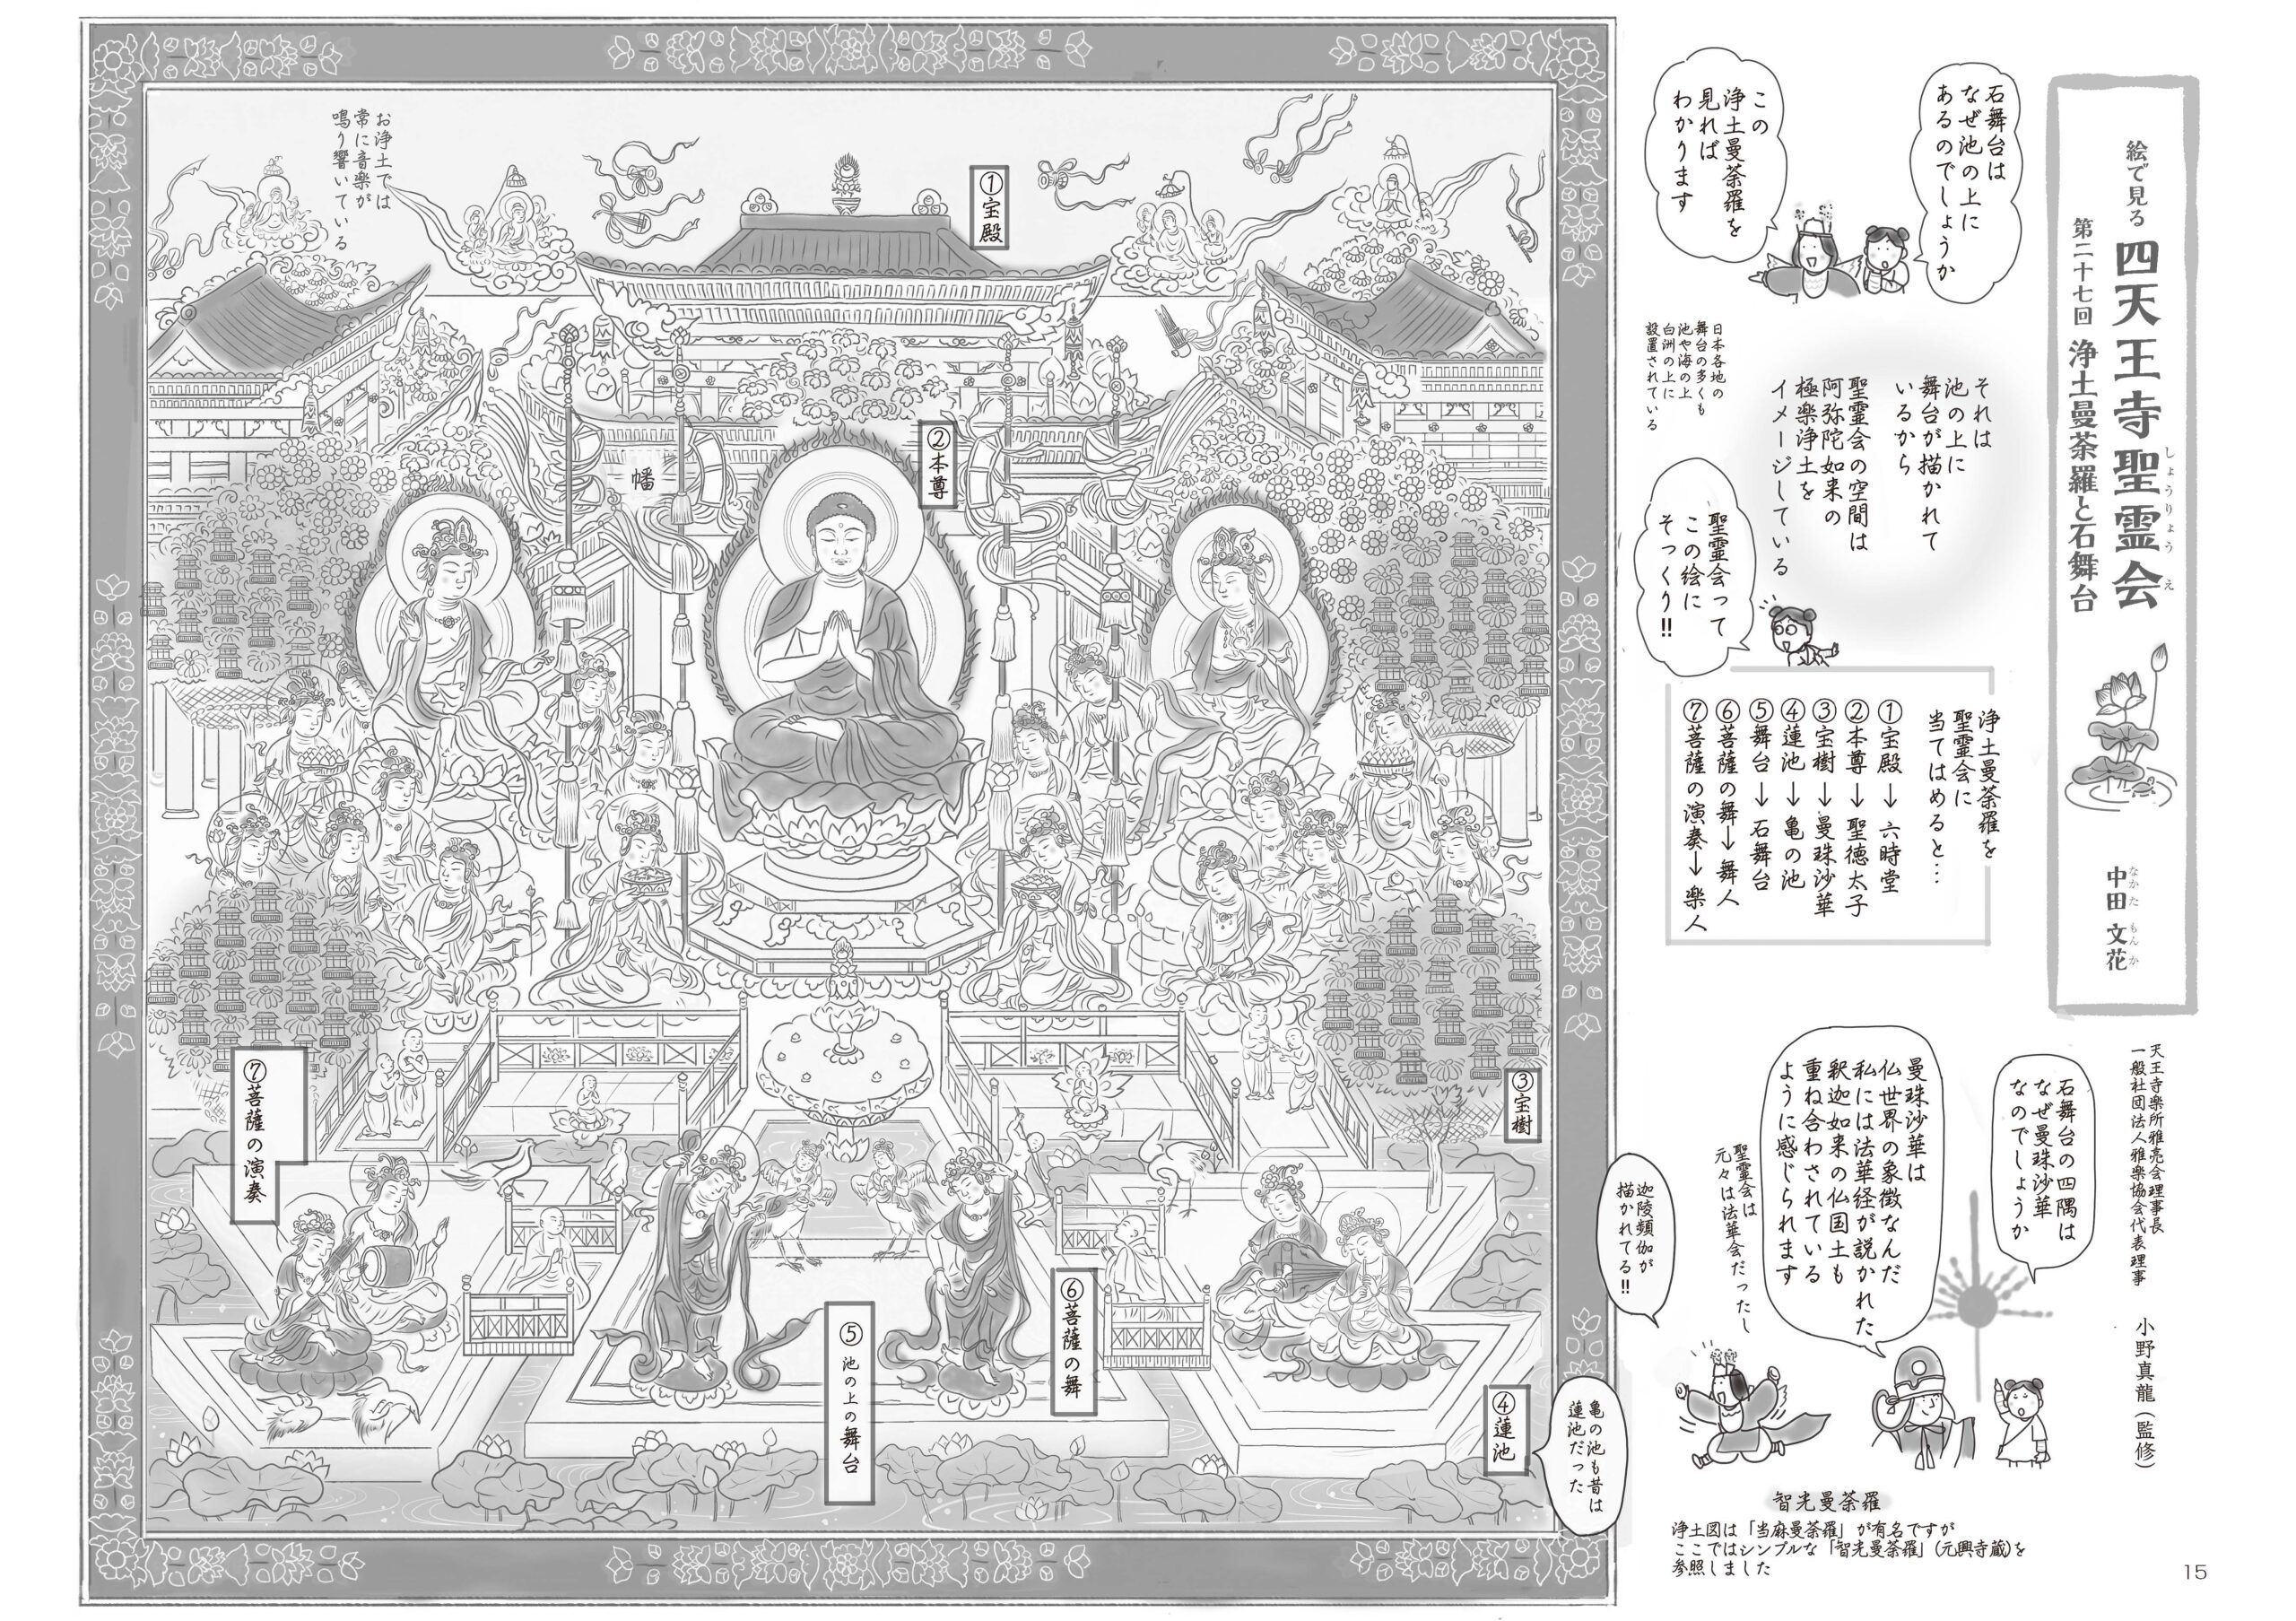 絵で見る
四天王寺聖霊会
しょうりょうえ
第二十七回 浄土曼荼羅と石舞台
中田 文花
なかた もんか
天王寺楽所雅亮会理事長
一般社団法人雅楽協会代表理事
小野真龍(監修)
石舞台は
なぜ池の上に
あるのでしょうか
この
浄土曼荼羅を
見れば
わかります
それは
池の上に
舞台が描かれて
いるから
聖霊会の空間は
阿弥陀如来の
極楽浄土を
イメージしている
日本各地の
舞台の多くも
池や海の上
白洲の上に
設置されている
聖霊会って
この絵に
そっくり!!
浄土曼荼羅を
聖霊会に
当てはめると…
①宝殿→六時堂
②本尊→聖徳太子
③宝樹→曼珠沙華
④蓮池→亀の池
⑤舞台→石舞台
⑥菩薩の舞→舞人
⑦菩薩の演奏→楽人
石舞台の四隅は
なぜ曼珠沙華
なのでしょうか
曼珠沙華は
仏世界の象徴なんだ
私には法華経が説かれた
釈迦如来の仏国土も
重ね合わされている
ように感じられます
聖霊会は
元々は法華会だったし
迦陵頻伽が
描かれてる!!
亀の池も昔は
蓮池だった
智光曼荼羅
浄土図は「当麻曼荼羅」が有名ですが
ここではシンプルな「智光曼荼羅」(元興寺蔵)を
参照しました
お浄土では
常に音楽が
鳴り響いている
①宝殿
②本尊
幡
③宝樹
④蓮池
⑤池の上の舞台
⑥菩薩の舞
⑦菩薩の演奏
15